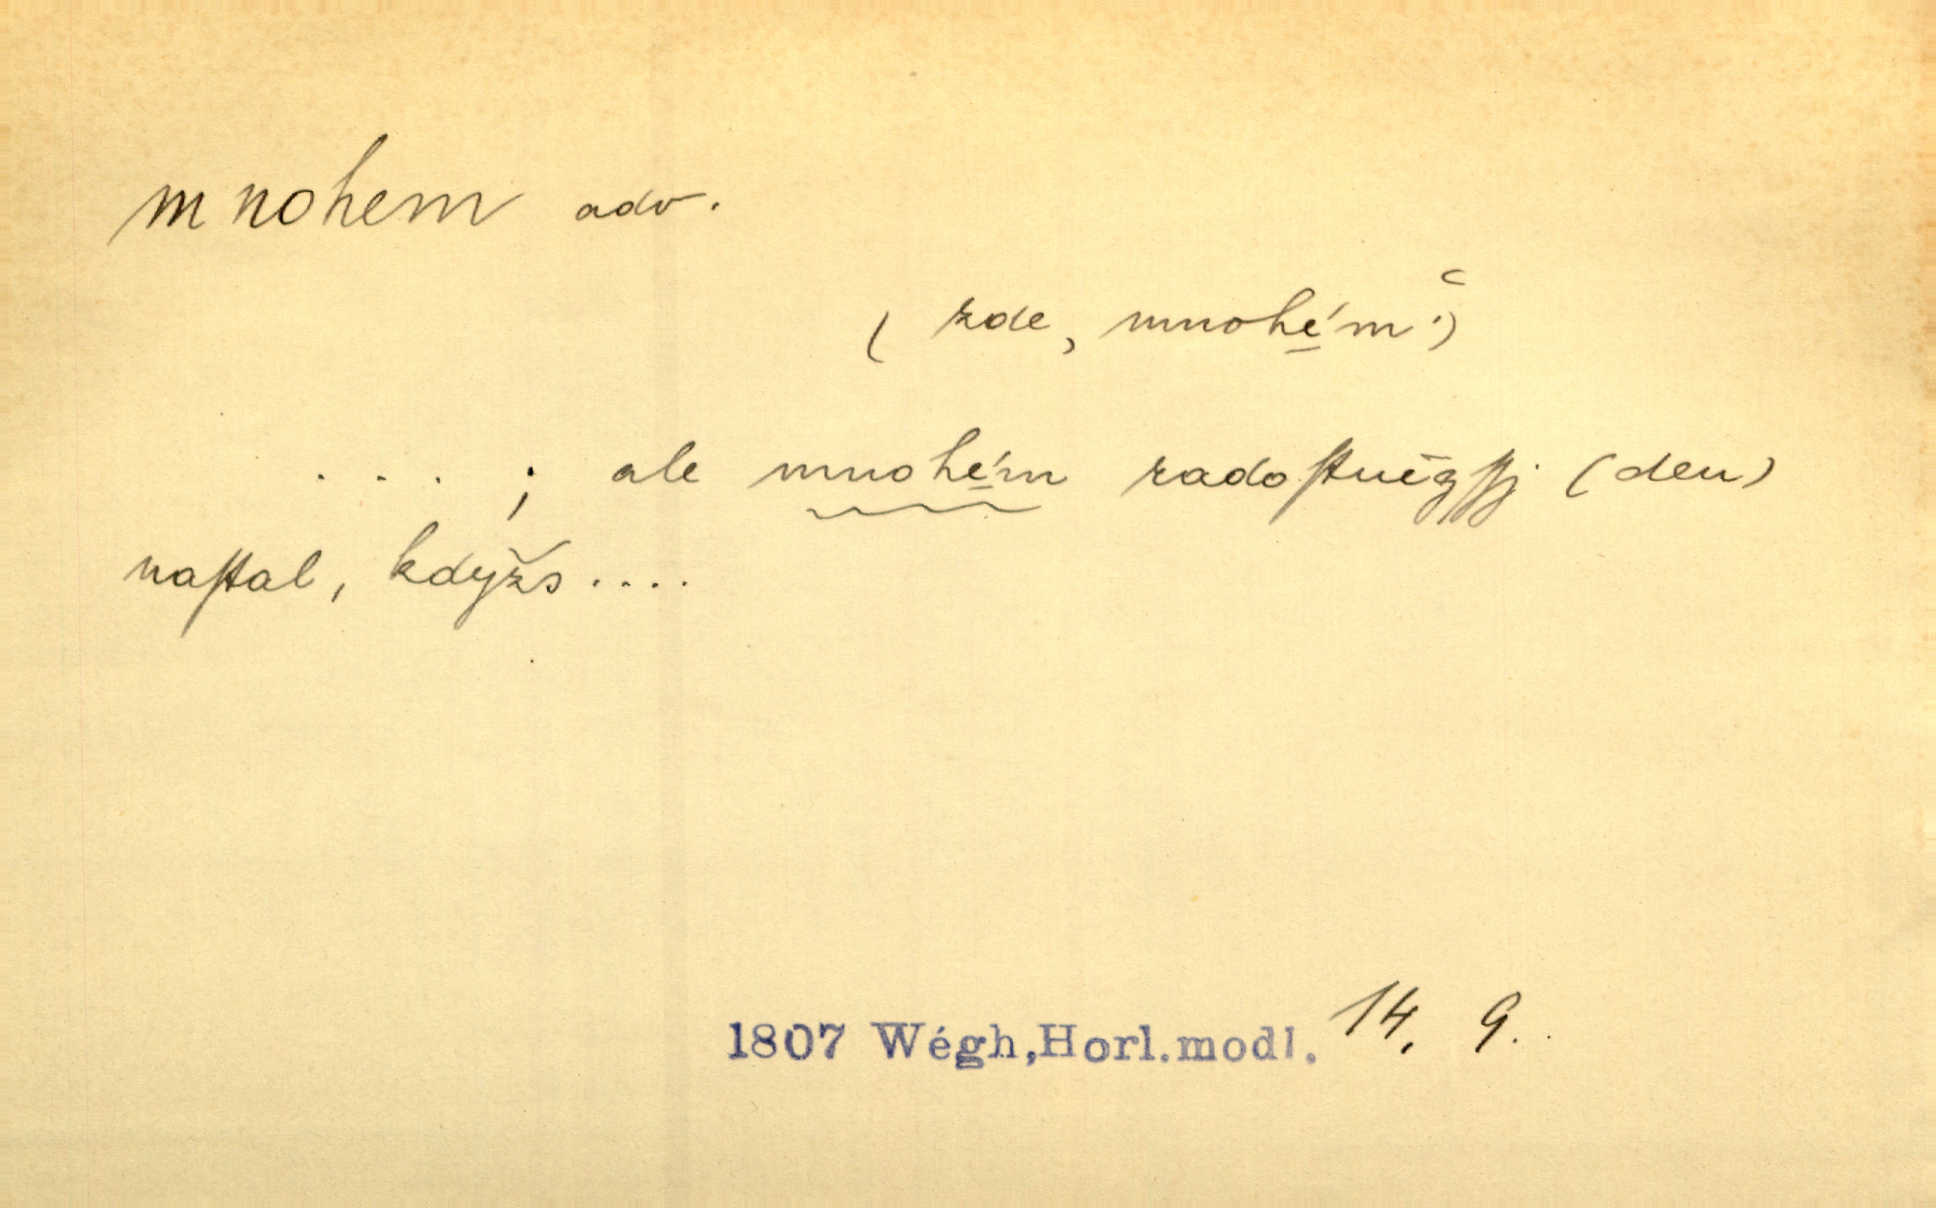 mnohem adv.
( zde, mnohém!)
. . . ; ale mnohém radoſtněgſſj (den)
naſtal, kdyžs ....
1807 Wégh,Horl.modl. 14. 9.